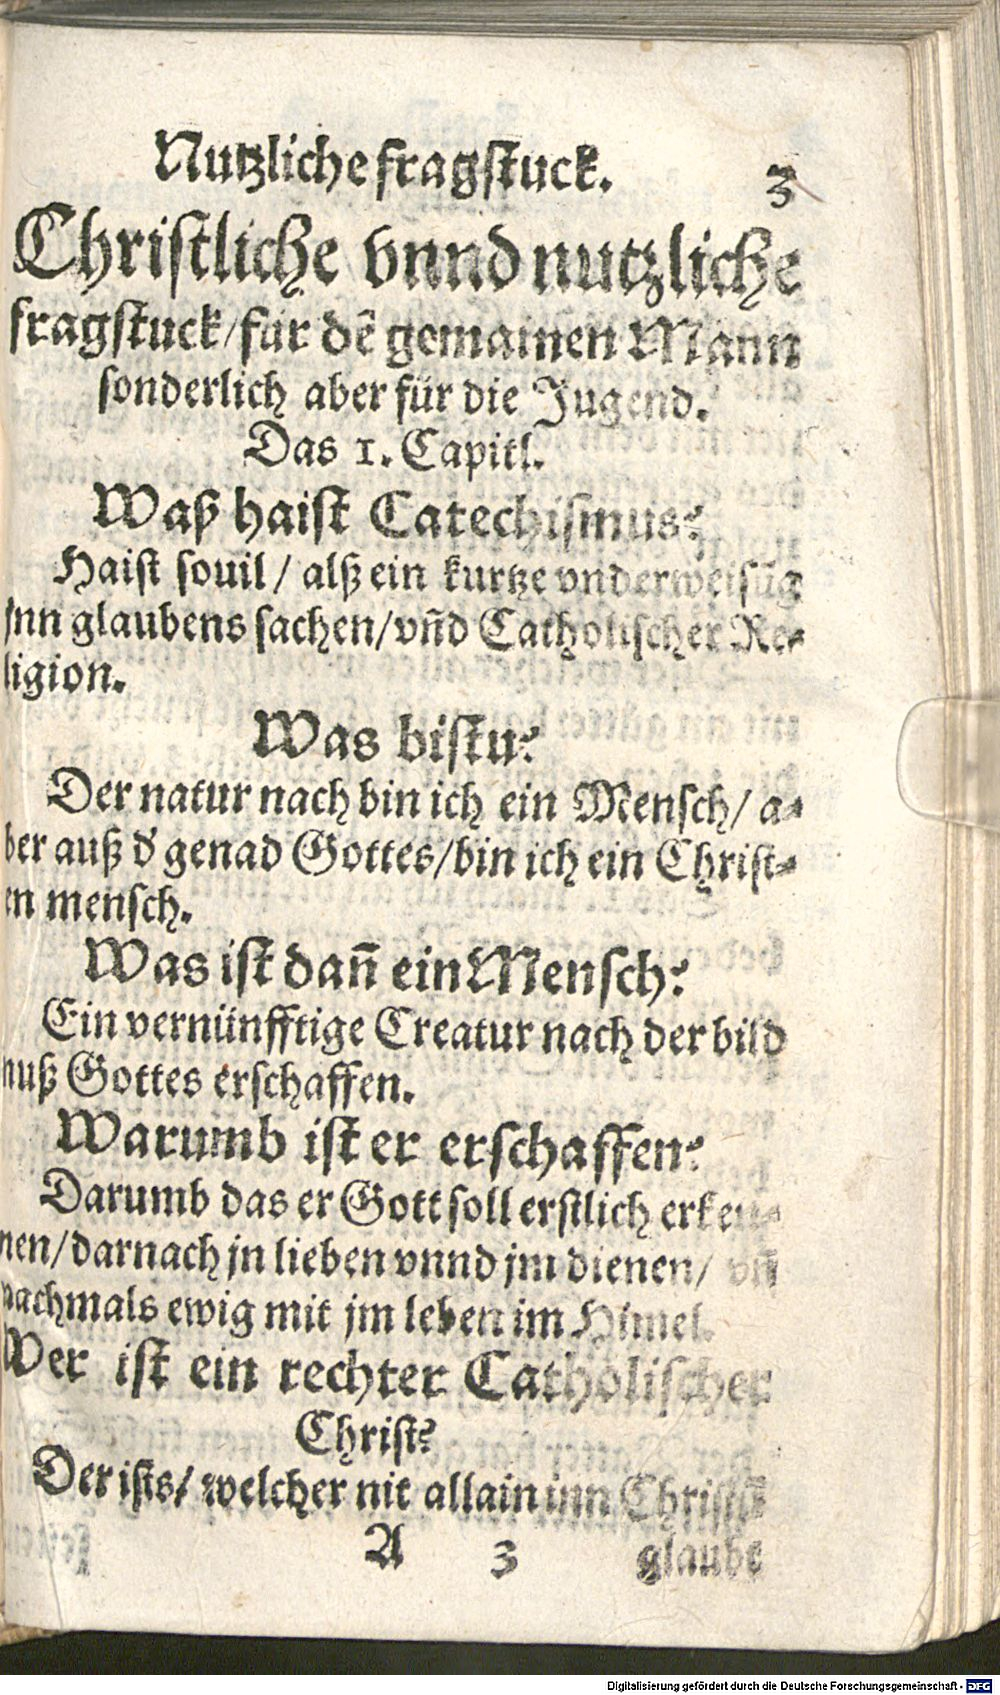 Nutzliche fragstuck. 3
Christliche vnnd nutzliche
fragstuck/ für dẽ gemainen Mann
sonderlich aber für die Jugend.
Das 1. Capitl.
Waß haist Catechismus?
Haist souil/ alß ein kurtze vnderweisũg
inn glaubens sachen/ vñd Catholischer Re-
ligion.
Was bistu?
Der natur nach bin ich ein Mensch/ a-
ber auß d' genad Gottes/ bin ich ein Christ-
en mensch.
Was ist dañ ein Mensch?
Ein vernünfftige Creatur nach der bild
nuß Gottes erschaffen.
Warumb ist er erschaffen?
Darumb das er Gott soll erstlich erken-
nen/ darnach jn lieben vnnd jm dienen/ vñ
nachmals ewig mit jm leben im Himel.
Wer ist ein rechter Catholischer
Christ?
Der ists/ welcher nit allain inn Christũ
A 3 glaube
Digitalisierung gefördert durch die Deutsche Forschungsgemeinschaft - DFG